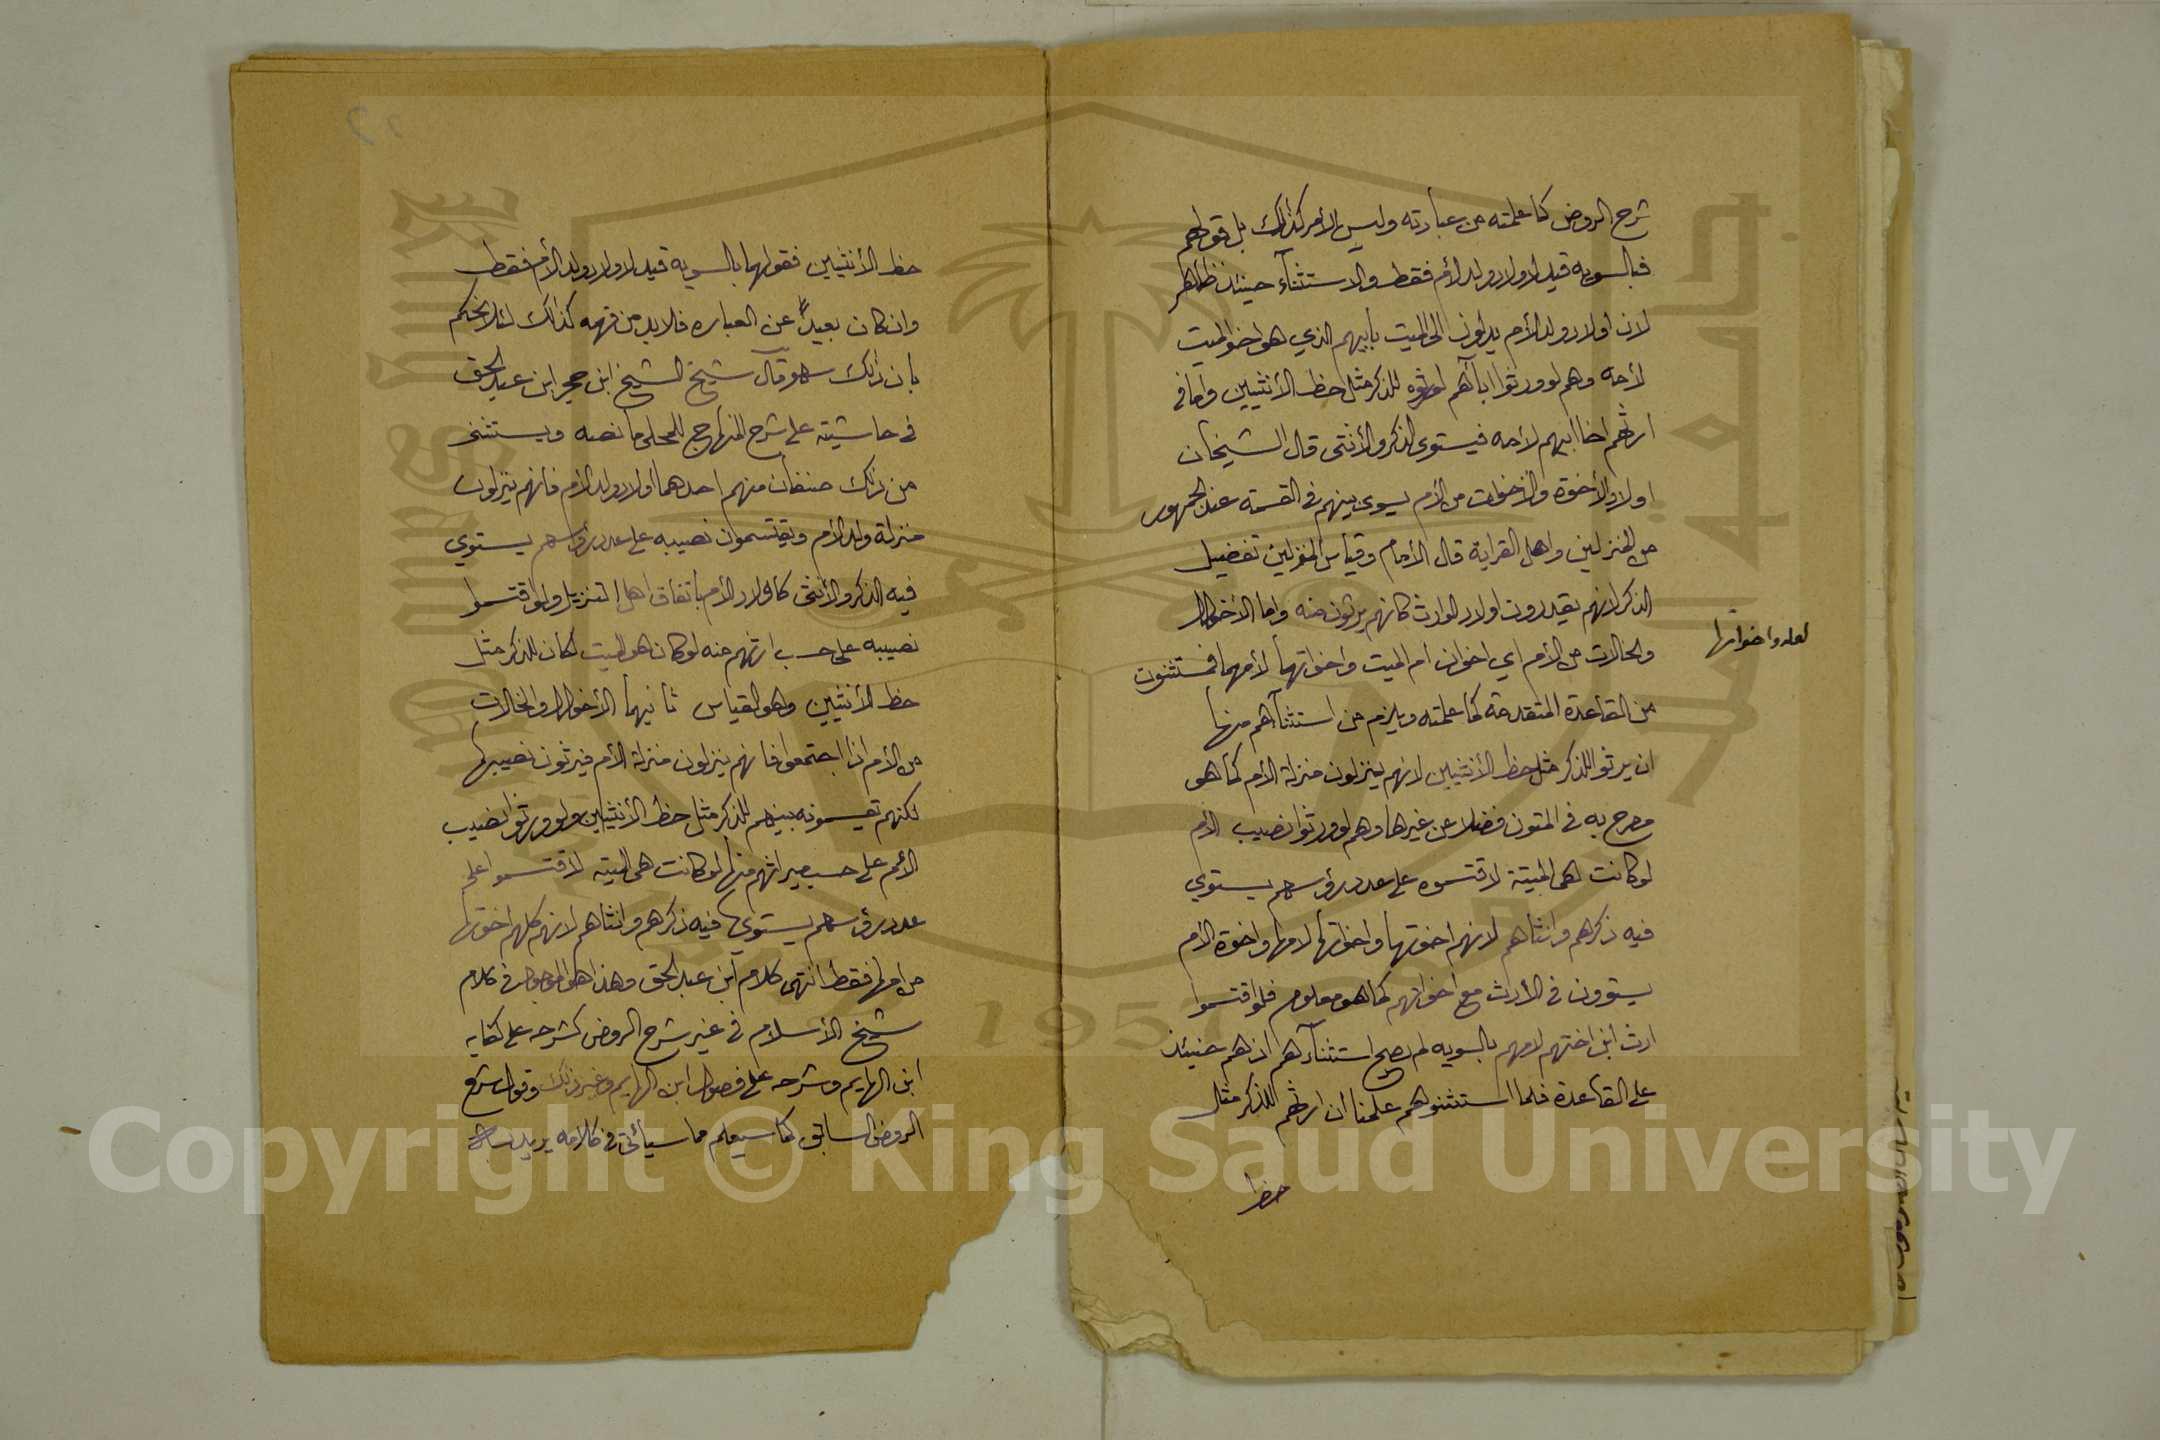 شرح الروض كما علمته من عبارته وليس الأمر كذلك بل قولهم
فبالسويه قيد لاولاد ولد الأم فقط والاستثنآء حينئذ ظاهر
لان اولاد ولد الأم يدلون الى الميت بأبيهم الذي هو اخو الميت
لأمه وهم لو ورثوا اباهم لورثوه للذكر مثل حظ الأنثيين واما في
ارثهم اخا ابيهم لأمه فيستوى الذكر والأنثى قال الشيخان
اولاد الأخوة والأخوات من الأم يسوى بينهم في القسمة عند الجمهور
من المنزلين واهل القرابة قال الأمام وقياس المنزلين تفضيل
الذكر لانهم يقدرون اولاد الوارث كانهم يرثون منه واما الأخوال
والخالات من الأم اي اخوان ام الميت واخواتهما لأمهما فمستثنون
لعله واخواتها
من القاعدة المتقدمة كما علمته ويلزم من استثنآهم منها
ان يرثوا للذكر مثل حظ الأنثيين لانهم ينزلون منزلة الأم كما هو
مصرح به في المتون فضلا عن غيرها وهم لو ورثوا نصيب الأم
لو كانت هى الميتة لاقتسموه على عدد رؤسهم يستوي
فيه ذكرهم وانثاهم لانهم اخوتها واخواتها لامها واخوة الأم
يستوون في الأرث مع اخواتهم كما هو معلوم فلو اقتسموا
ارث ابن اختهم لامهم بالسويه لم يصح استثنآءهم اذ هم حينئذ
على القاعدة فلما استثنوهم علمنا ان ارثهم للذكر مثل
حظ
حظ الأنثيين فقولهما بالسويه قيد لاولاد ولد الأم فقط
وان كان بعيداً عن العباره فلا بد من فهمه كذلك لئلا يحكم
بان ذلك سهو قال شيخ الشيخ ابن حجر ابن عبد الحق
في حاشيته على شرح المنهاج للمحلى ما نصه ويستثنى
من ذلك صنفان منهم احدهما أولاد ولد الأم فانهم ينزلون
منزلة ولد الأم ويقتسمون نصيبه على عدد رؤسهم يستوي
فيه الذكر والأنثى كأولاد الأم باتفاق اهل التنزيل ولو اقتسموا
نصيبه على حسب ارثهم منه لو كان هو الميت لكان للذكر مثل
حظ الأنثيين وهو القياس ثانيهما الأخوال والخالات
من الأم اذا اجتمعوا فانهم ينزلون منزلة الأم فيرثون نصيبها
لكنهم يقسمونه بينهم للذكر مثل حظ الأنثيين ولو ورثوا نصيب
الأم على حسب ميراثهم منها لو كانت هى الميته لاقتسموا على
عدد رؤسهم يستوي فيه ذكرهم وانثاهم لانهم كلهم اخوتها
من امها فقط انتهى كلام ابن عبد الحق وهذا هو الموجود في كلام
شيخ الأسلام في غير شرح الروض كشرحه على كفايه
ابن الهايم وشرحه على فصول ابن الهايم وغير ذلك وقول شرح
الروض السابق كما سيعلم مما سيأتي في كلامه يريد
Copyright © King Saud University
1957